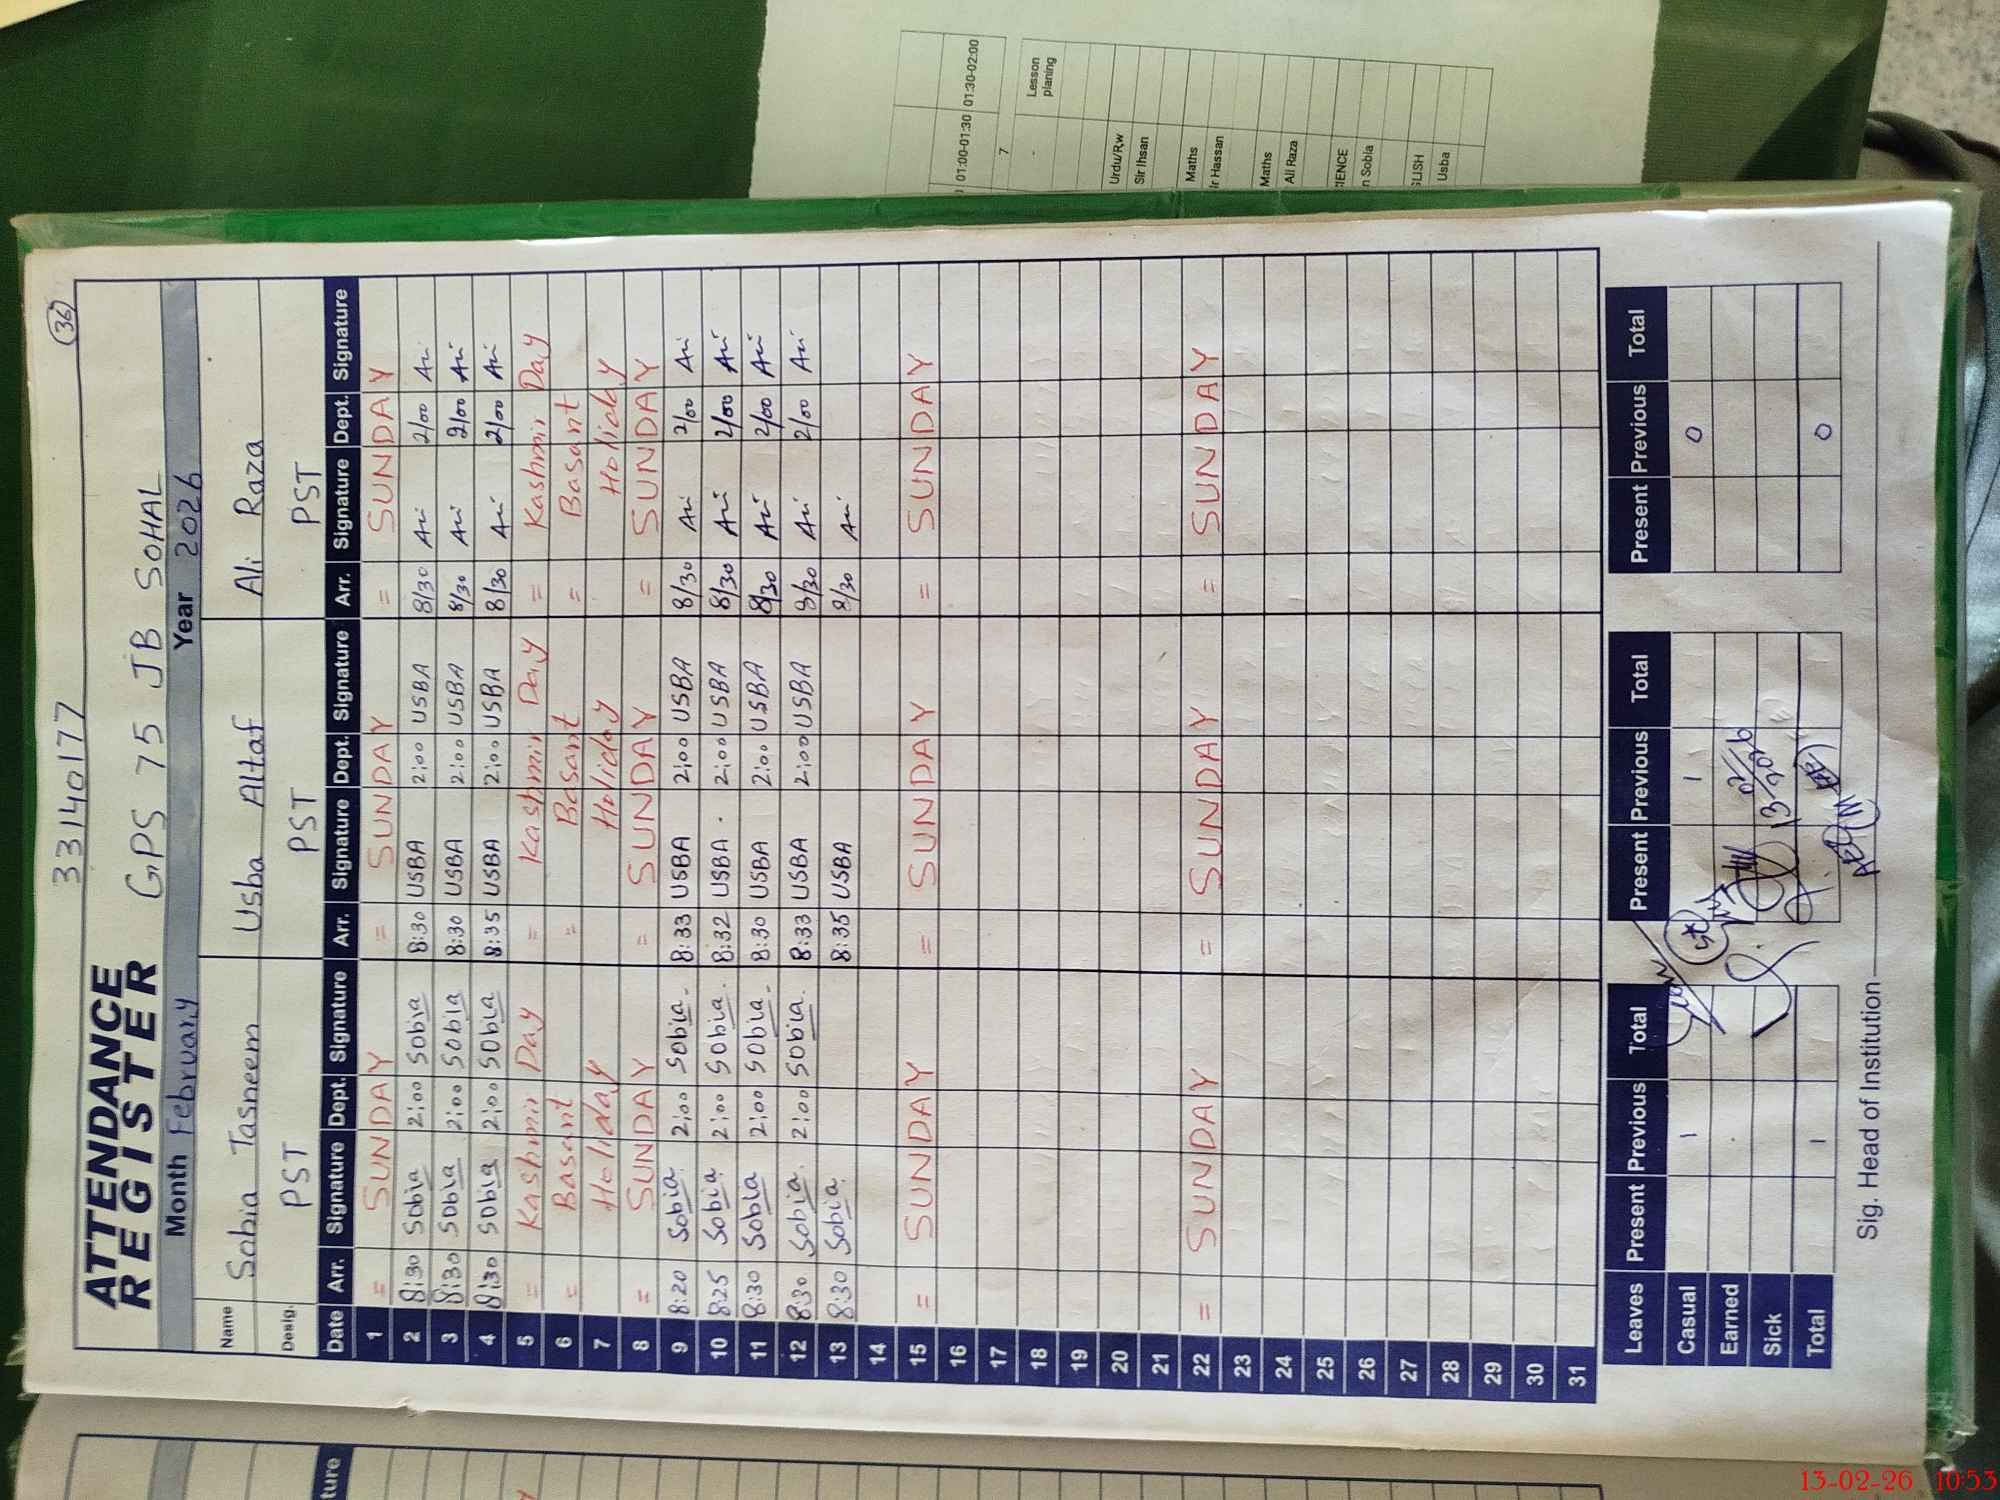 36
33140177
ATTENDANCE
REGISTER GPS 75 JB SOHAL
Month February Year 2026
Name Sobia Tasneem Usba Altaf Ali Raza
Desig. PST PST PST
Date Arr. Signature Dept. Signature Arr. Signature Dept. Signature Arr. Signature Dept. Signature
1 = SUNDAY = SUNDAY = SUNDAY
2 8:30 Sobia 2:00 Sobia 8:30 USBA 2:00 USBA 8/30 Ali 2/00 Ali
3 8:30 Sobia 2:00 Sobia 8:30 USBA 2:00 USBA 8/30 Ali 2/00 Ali
4 8:30 Sobia 2:00 Sobia 8:35 USBA 2:00 USBA 8/30 Ali 2/00 Ali
5 = Kashmir Day = Kashmir Day = Kashmir Day
6 = Basant = Basant = Basant
7 Holiday Holiday Holiday
8 = SUNDAY = SUNDAY = SUNDAY
9 8:20 Sobia 2:00 Sobia 8:33 USBA 2:00 USBA 8/30 Ali 2/00 Ali
10 8:25 Sobia 2:00 Sobia 8:32 USBA 2:00 USBA 8/30 Ali 2/00 Ali
11 8:30 Sobia 2:00 Sobia 8:30 USBA 2:00 USBA 8/30 Ali 2/00 Ali
12 8:30 Sobia 2:00 Sobia 8:33 USBA 2:00 USBA 8/30 Ali 2/00 Ali
13 8:30 Sobia 8:35 USBA 8/30 Ali
14
15 = SUNDAY = SUNDAY = SUNDAY
16
17
18
19
20
21
22 = SUNDAY = SUNDAY = SUNDAY
23
24
25
26
27
28
29
30
31
Leaves Present Previous Total Present Previous Total Present Previous Total
Casual 1 1 0
Earned
Sick
Total 1 0
13/02/2026
Sig. Head of Institution
01:00-01:30 01:30-02:00
7
- Lesson planing
Urdu/R,w
Sir Ihsan
Maths
Ir Hassan
Maths
Ali Raza
IENCE
n Sobla
GLISH
Usba
ture
13-02-26 10:53